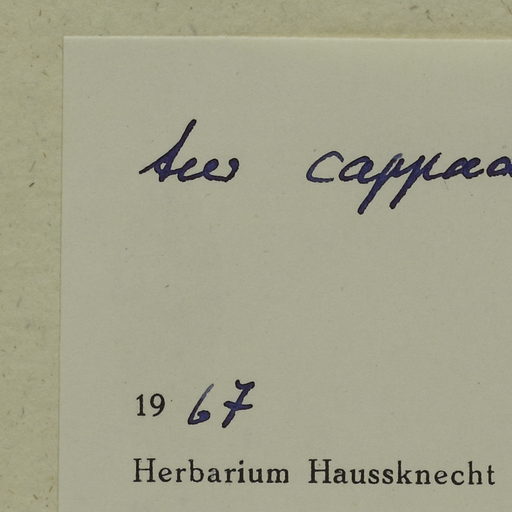 Acer cappad
19 67
Herbarium Haussknecht